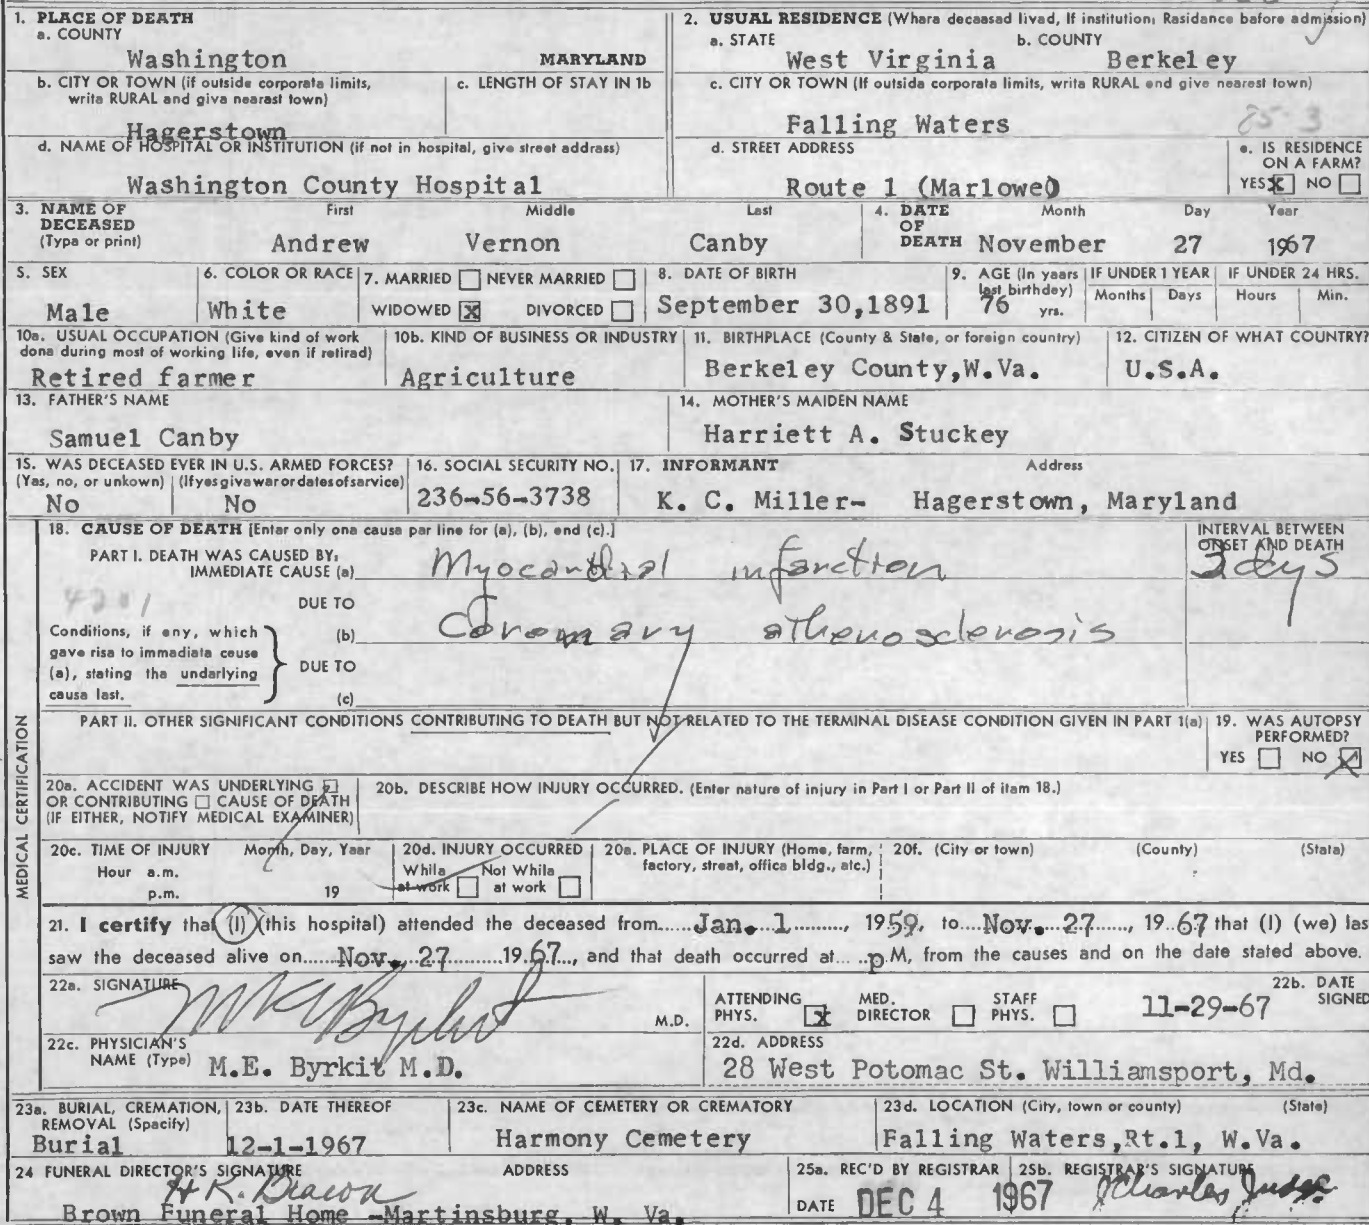 1. PLACE OF DEATH
a. COUNTY
Washington MARYLAND
b. CITY OR TOWN (if outside corporate limits, write RURAL and give nearest town)
Hagerstown
c. LENGTH OF STAY IN 1b
d. NAME OF HOSPITAL OR INSTITUTION (if not in hospital, give street address)
Washington County Hospital
2. USUAL RESIDENCE (Where deceased lived, If institution: Residence before admission)
a. STATE
West Virginia
b. COUNTY
Berkeley
c. CITY OR TOWN (If outside corporate limits, write RURAL and give nearest town)
Falling Waters
85-3
d. STREET ADDRESS
Route 1 (Marlowe)
e. IS RESIDENCE ON A FARM?
YES X NO
3. NAME OF DECEASED (Type or print)
First Middle Last
Andrew Vernon Canby
4. DATE OF DEATH
Month Day Year
November 27 1967
5. SEX
Male
6. COLOR OR RACE
White
7. MARRIED NEVER MARRIED
WIDOWED X DIVORCED
8. DATE OF BIRTH
September 30,1891
9. AGE (In years last birthday)
76 yrs.
IF UNDER 1 YEAR
Months Days
IF UNDER 24 HRS.
Hours Min.
10a. USUAL OCCUPATION (Give kind of work done during most of working life, even if retired)
Retired farmer
10b. KIND OF BUSINESS OR INDUSTRY
Agriculture
11. BIRTHPLACE (County & State, or foreign country)
Berkeley County,W.Va.
12. CITIZEN OF WHAT COUNTRY?
U.S.A.
13. FATHER'S NAME
Samuel Canby
14. MOTHER'S MAIDEN NAME
Harriett A. Stuckey
15. WAS DECEASED EVER IN U.S. ARMED FORCES?
(Yes, no, or unkown) (If yes give war or dates of service)
No No
16. SOCIAL SECURITY NO.
236-56-3738
17. INFORMANT Address
K. C. Miller- Hagerstown, Maryland
MEDICAL CERTIFICATION
18. CAUSE OF DEATH [Enter only one cause per line for (a), (b), and (c).]
INTERVAL BETWEEN ONSET AND DEATH
PART I. DEATH WAS CAUSED BY:
IMMEDIATE CAUSE (a) Myocardial infarction
days
4201
DUE TO
(b) Coronary atherosclerosis
Conditions, if any, which gave rise to immediate cause (a), stating the underlying cause last.
DUE TO
(c)
PART II. OTHER SIGNIFICANT CONDITIONS CONTRIBUTING TO DEATH BUT NOT RELATED TO THE TERMINAL DISEASE CONDITION GIVEN IN PART 1(a)
19. WAS AUTOPSY PERFORMED?
YES NO X
20a. ACCIDENT WAS UNDERLYING
OR CONTRIBUTING CAUSE OF DEATH
(IF EITHER, NOTIFY MEDICAL EXAMINER)
20b. DESCRIBE HOW INJURY OCCURRED. (Enter nature of injury in Part I or Part II of item 18.)
20c. TIME OF INJURY Month, Day, Year
Hour a.m.
p.m. 19
20d. INJURY OCCURRED
While at work Not While at work
20e. PLACE OF INJURY (Home, farm, factory, street, office bldg., etc.)
20f. (City or town) (County) (State)
21. I certify that (I) (this hospital) attended the deceased from Jan. 1, 1959, to Nov. 27, 1967 that (I) (we) las
saw the deceased alive on Nov. 27 1967, and that death occurred at p M, from the causes and on the date stated above.
22a. SIGNATURE
M E Byrkit M.D.
ATTENDING PHYS. X MED. DIRECTOR STAFF PHYS.
22b. DATE SIGNED
11-29-67
22c. PHYSICIAN'S NAME (Type) M.E. Byrkit M.D.
22d. ADDRESS
28 West Potomac St. Williamsport, Md.
23a. BURIAL, CREMATION, REMOVAL (Specify)
Burial
23b. DATE THEREOF
12-1-1967
23c. NAME OF CEMETERY OR CREMATORY
Harmony Cemetery
23d. LOCATION (City, town or county) (State)
Falling Waters,Rt.1, W.Va.
24 FUNERAL DIRECTOR'S SIGNATURE ADDRESS
H. K.
Brown Funeral Home -Martinsburg, W. Va.
25a. REC'D BY REGISTRAR
DATE DEC 4 1967
25b. REGISTRAR'S SIGNATURE
Charles Judge